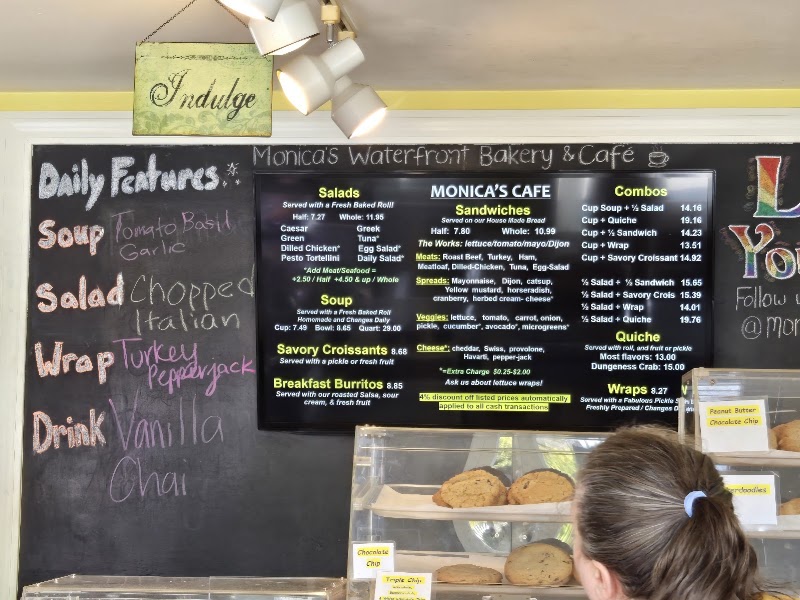 Indulge
Monica's Waterfront Bakery & Café
Daily Features
Soup Tomato Basil
Garlic
Salad Chopped
Italian
Wrap Turkey
Pepperjack
Drink Vanilla
Chai
MONICA'S CAFE
Salads
Served with a Fresh Baked Roll!
Half: 7.27 Whole: 11.95
Caesar Greek
Green Tuna*
Dilled Chicken* Egg Salad*
Pesto Tortellini Daily Salad*
*Add Meat/Seafood =
+2.50 / Half +4.50 & up / Whole
Soup
Served with a Fresh Baked Roll
Homemade and Changes Daily
Cup: 7.49 Bowl: 8.65 Quart: 29.00
Savory Croissants 8.68
Served with a pickle or fresh fruit
Breakfast Burritos 8.85
Served with our roasted Salsa, sour
cream, & fresh fruit
Sandwiches
Served on our House Made Bread
Half: 7.80 Whole: 10.99
The Works: lettuce/tomato/mayo/Dijon
Meats: Roast Beef, Turkey, Ham,
Meatloaf, Dilled-Chicken, Tuna, Egg-Salad
Spreads: Mayonnaise, Dijon, catsup,
Yellow mustard, horseradish,
cranberry, herbed cream- cheese*
Veggies: lettuce, tomato, carrot, onion,
pickle, cucumber*, avocado*, microgreens*
Cheese*: cheddar, Swiss, provolone,
Havarti, pepper-jack
*=Extra Charge $0.25-$2.00
Ask us about lettuce wraps!
4% discount off listed prices automatically
applied to all cash transactions
Combos
Cup Soup + ½ Salad 14.16
Cup + Quiche 19.16
Cup + ½ Sandwich 14.23
Cup + Wrap 13.51
Cup + Savory Croissant 14.92
½ Salad + ½ Sandwich 15.65
½ Salad + Savory Crois 15.39
½ Salad + Wrap 14.01
½ Salad + Quiche 19.76
Quiche
Served with roll, and fruit or pickle
Most flavors: 13.00
Dungeness Crab: 15.00
Wraps 8.27
Served with a Fabulous Pickle
Freshly Prepared / Changes
Follow
Peanut Butter
Chocolate Chip
Chocolate
Chip
Triple Chip